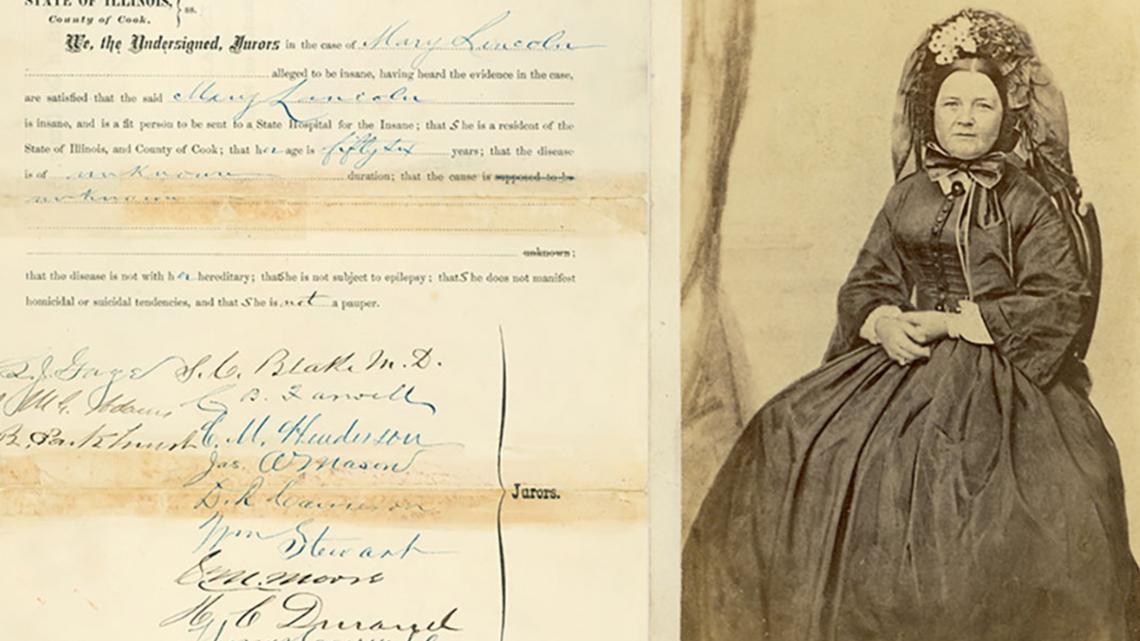 STATE OF ILLINOIS, } ss.
County of Cook.
We, the Undersigned, Jurors in the case of Mary Lincoln
alleged to be insane, having heard the evidence in the case,
are satisfied that the said Mary Lincoln
is insane, and is a fit person to be sent to a State Hospital for the Insane; that She is a resident of the
State of Illinois, and County of Cook; that her age is fifty six years; that the disease
is of unknown duration; that the cause is supposed to be
unknown
unknown;
that the disease is not with her hereditary; that She is not subject to epilepsy; that She does not manifest
homicidal or suicidal tendencies, and that She is not a pauper.
L. J. Gage S. C. Blake M. D.
M G. Adams C B. Farwell
B. Parkhurst C. M. Henderson
Jas. A Mason
D. R. Cameron
Jurors.
Wm Stewart
C. M. Moore
H. C. Durand